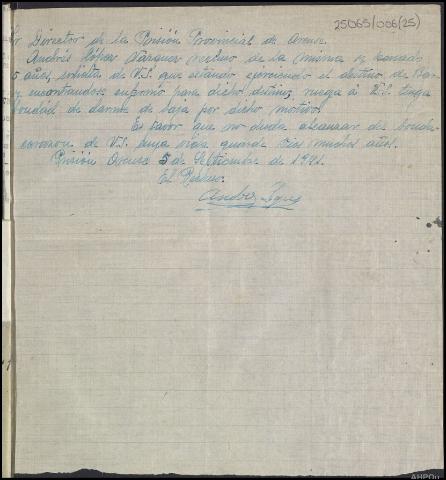 25065/006(25)
Sr Director de la Prisión Provincial de Orense.
Andrés López Vázquez recluso de la misma y penado
5 años, solicita de V.S. que estando ejerciendo el destino de
y encontrandose enfermo para dicho destino, ruega á V.S. tenga
bondad de darme de baja por dicho motivo.
Es favor que no duda alcanzar del bonda
corazon de V.S. cuya vida guarde Dios muchos años.
Prisión Orense 5 de Septiembre de 1941.
El Recluso.
Andres López
AHPOu